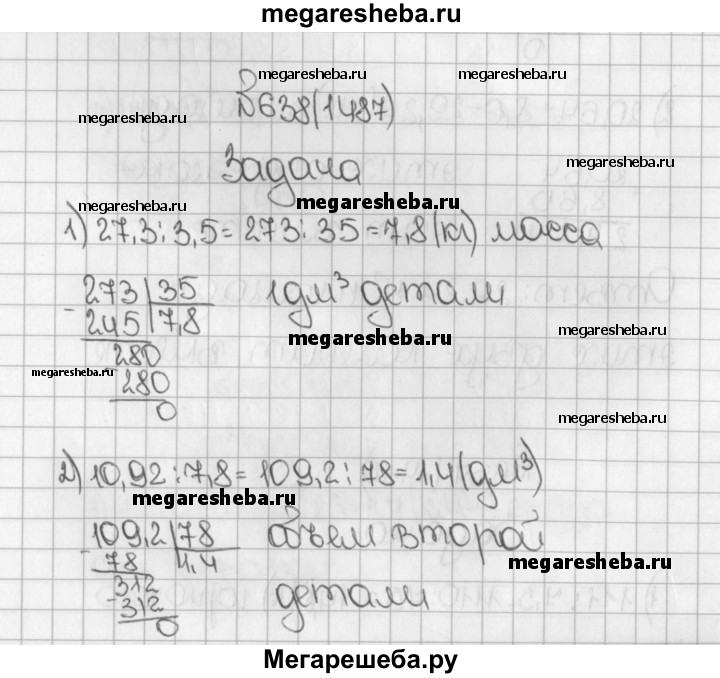 megaresheba.ru
megaresheba.ru megaresheba.ru
№638(1487)
megaresheba.ru
megaresheba.ru
Задача
megaresheba.ru megaresheba.ru
1) 27,3 : 3,5 = 273 : 35 = 7,8 (кг) масса
273 35 1дм³ детали
- 245 7,8
megaresheba.ru
megaresheba.ru
280
megaresheba.ru
280
0
megaresheba.ru
2) 10,92 : 7,8 = 109,2 : 78 = 1,4 (дм³)
megaresheba.ru
109,2 78 объем второй
- 78 1,4
megaresheba.ru
312 детали
- 312
0
Мегарешеба.ру